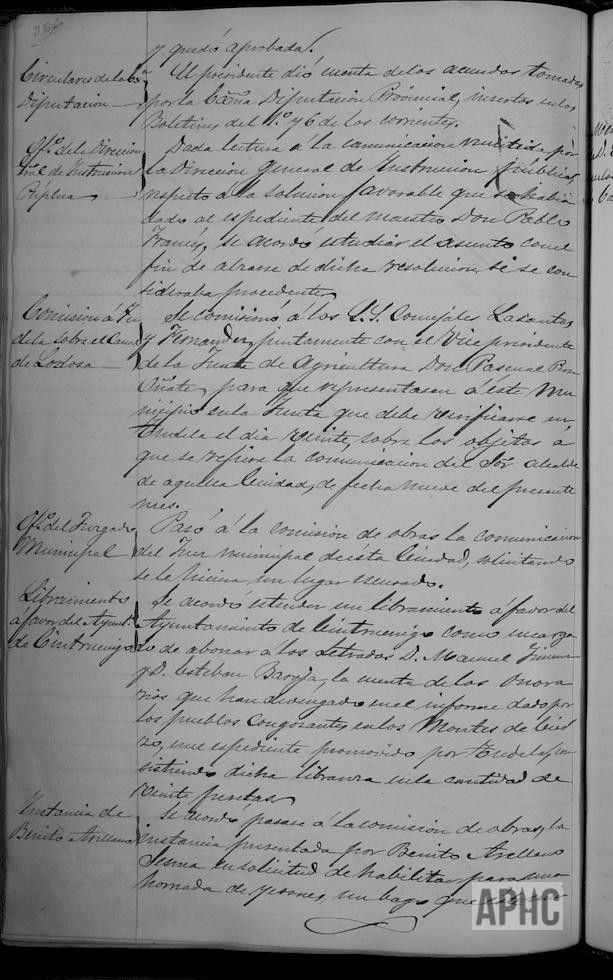 y quedó aprobada.
Circulares de la Exma
Diputacion
El presidente dió cuenta de los acuerdos tomados
por la Exma Diputacion Provincial, insertos en los
Boletines del 1º y 6 de los corrientes.
Ofº. de la Direccion
Gral de Instruccion
Pública
Dada lectura á la comunicacion remitida por
la Direccion General de Instruccion pública
respecto á la solucion favorable que se habia
dado al espediente del maestro Don Pablo
se acordó estudiar el asunto con el
fin de alzarse de dicha resolucion, si se con
sideraba procedente.
Comision á Tu
dela sobre el Canal
de Lodosa
Se comisionó á los S.S. Concejales Lasantas
y Fernandez, juntamente con el Vice presidente
de la Junta de Agricultura Don Pascual
Oñate, para que representasen á éste Mu
nicipio en la Junta que debe verificarse en
Tudela el dia veinte, sobre los objetos á
que se refiere la comunicacion del Sór Alcalde
de aquella Ciudad, de fecha nueve del presente
mes.
Ofº. del Juzgado
Municipal
Pasó á la comision de obras la comunicacion
del Juez municipal de ésta Ciudad, solicitando
se le hiciera un lugar escusado.
Libramiento
á favor del Ayunto.
de Cintruenigo
Se acordó estender un libramiento á favor del
Ayuntamiento de Cintruenigo como encarga
do de abonar á los Letrados D. Manuel Jimenez
y D. Esteban Baraja, la cuenta de los onora
rios que han devengado en el informe dado por
los pueblos congozantes en los Montes de Cier
zo, en espediente promovido por Tudela, con
sistiendo dicha libranza en la cantidad de
veinte pesetas.
Instancia de
Benito Arellano
Se acordó pasase á la comision de obras, la
instancia presentada por Benito Arellano
en solicitud de habilitar para una
hornada de yesones, un bago que
APHC